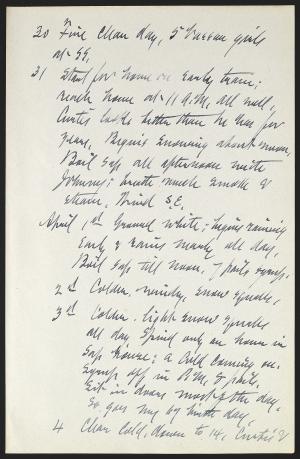 30 Fine Clear day, 5 Vassar girls
at SS.
31 Start for home on early train;
reach home at 11 A.M. all well,
Curtis looks better than he has for
years, Begins snowing about noon,
Boil sap all afternoon with
Johnny; breathe much smoke &
steam, Wind S.E.
April 1st Ground white; begins raining
Early & rains nearly all day,
Boil sap till noon, 7 pails syrup.
2d Colder, windy, snow squalls,
3d Colder, light snow squalls
all day. Spend only an hour in
Sap House; a cold coming on.
Syrup off in P.M. 5 pails.
Sit in doors most of the day.
So goes my birth day,
4 Clear cold, down to 14, Curtis &